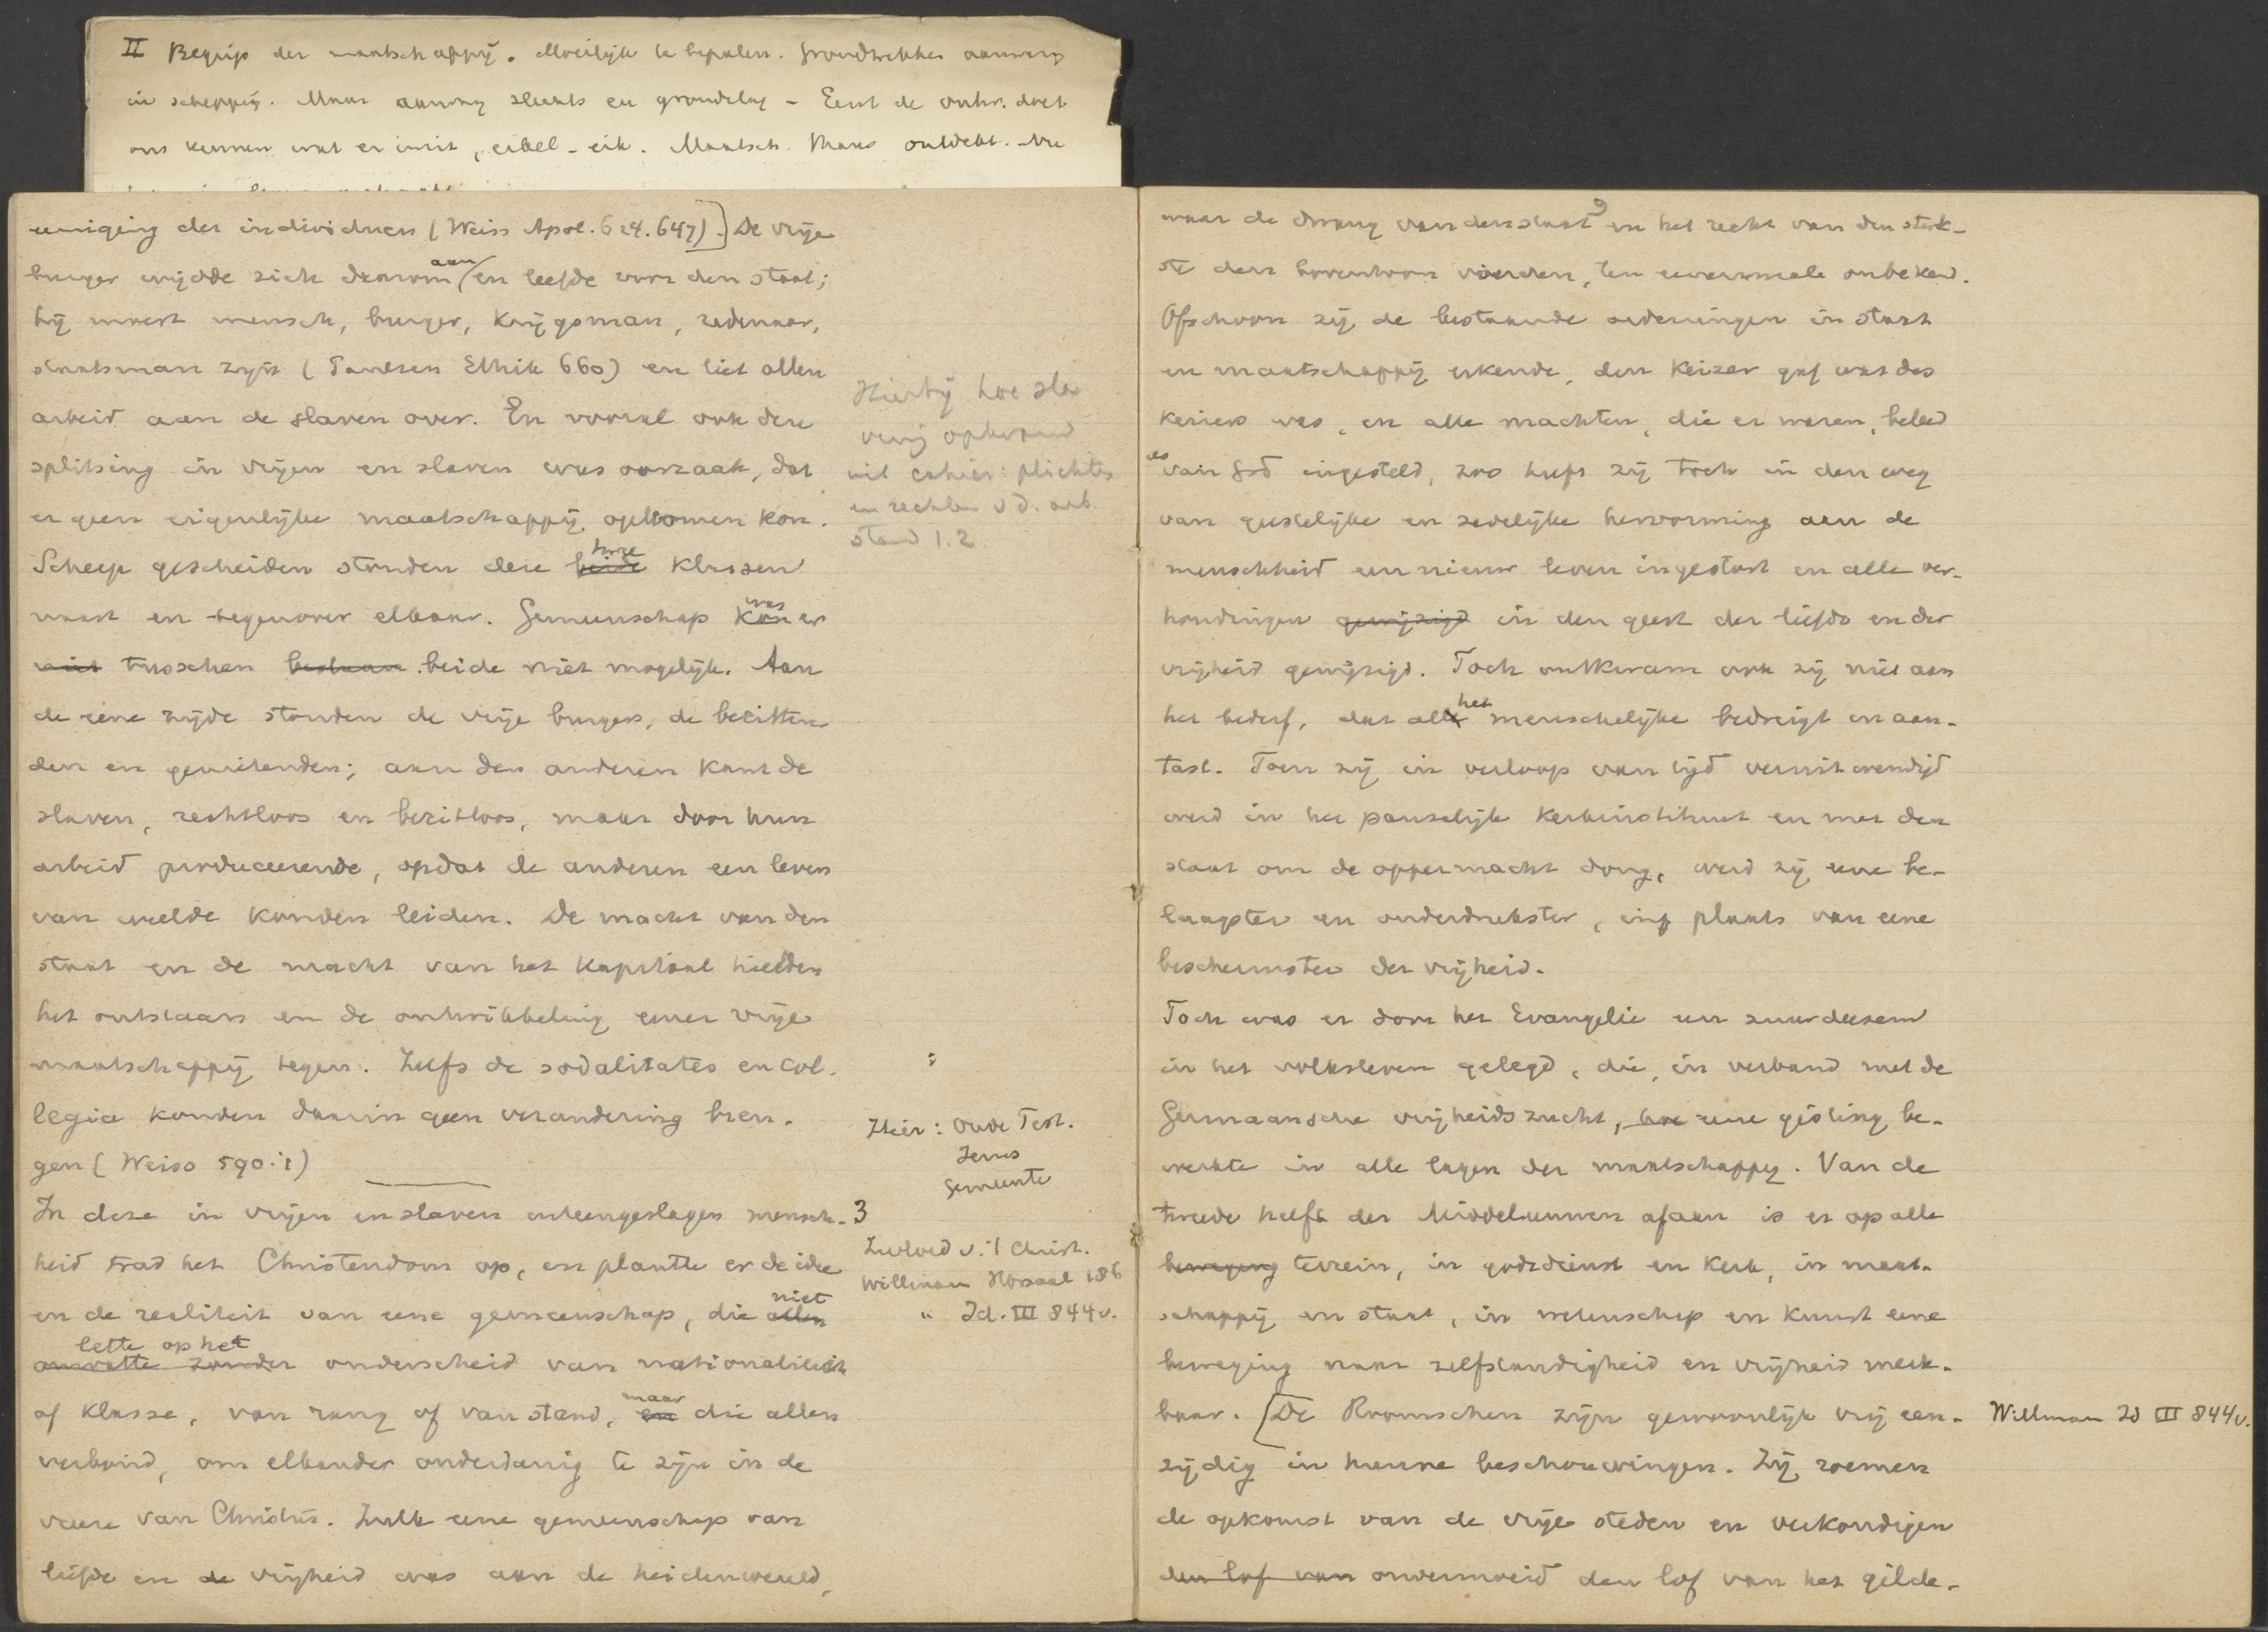 II Begrip der maatschappij. Moeilijk te bepalen. Grondtrekken aanwezig
in schepping. Maar aanweg slechts en grondslag - Eerst de ontw. doet
ons kennen wat er in zit, eikel - eik. Maatsch. thans ontdekt.
eeniging der individuen (Weiss Apol. 624. 647).] De vrije
burger wijdde zich daarom aan en leefde voor den staat;
hij moest mensch, burger, krijgsman, redenaar,
staatsman zijn (Paulsen Ethik 660) en liet allen
arbeid aan de slaven over. En vooral ook deze
splitsing in vrijen en slaven was oorzaak, dat
er geen eigenlijke maatschappij opkomen kon.
Scherp gescheiden stonden deze beide twee klassen
naast en tegenover elkaar. Gemeenschap kon was er
niet tusschen bestaan beide niet mogelijk. Aan
de eene zijde stonden de vrije burgers, de bezitten-
den en genietenden; aan den anderen kant de
slaven, rechtloos en bezitloos, maar door hun
arbeid produceerende, opdat de anderen een leven
van weelde konden leiden. De macht van den
staat en de macht van het kapitaal hielden
het ontstaan en de ontwikkeling eener vrije
maatschappij tegen. Zelfs de sodalitates en col-
legia konden daarin geen verandering bren-
gen (Weiss 590.)
In deze in vrijen en slaven uiteengeslagen mensch-
heid trad het Christendom op, en plantte er de idee
en de realiteit van eene gemeenschap, die allen niet
omvatte zonder lette op het onderscheid van nationaliteit
of klasse, van rang of van stand, en maar die allen
verbond, om elkander onderdanig te zijn in de
vreeze van Christus. Zulk eene gemeenschap van
liefde en de vrijheid was aan de heidenwereld,
Hierbij hoe sla
vernij opkwam
uit cahier: plichten
en rechten v d. arb.
stand 1.2
Hier: Oude Test.
Jezus
Gemeente
3
Invloed v. 't Christ.
Willmann Hörsaal 186
" Id. III 844v.
waar de dwang van den staat en het recht van den sterk-
ste den boventoon voerden, ten eenenmale onbekend.
Ofschoon zij de bestaande ordeningen in staat
en maatschappij erkende, den keizer gaf wat des
keizers was, en alle machten, die er waren, beleed
als van God ingesteld, zoo heeft zij toch in den weg
van geestelijke en zedelijke hervorming aan de
menschheid een nieuw leven ingestort en alle ver-
houdingen gewijzigd in den geest der liefde en der
vrijheid gewijzigd. Toch ontkwam ook zij niet aan
het bederf, dat alle het menschelijke bedreigt en aan-
tast. Toen zij in verloop van tijd veruitwendigd
werd in het pauselijk kerkinstituut en met den
staat om de oppermacht dong, werd zij eene be-
laagster en onderdrukster, in plaats van eene
beschermster der vrijheid.
Toch was er door het Evangelie een zuurdeesem
in het volksleven gelegd, die, in verband met de
Germaansche vrijheidszucht, eene gisting be-
werkte in alle lagen der maatschappij. Van de
tweede helft der Middeleeuwen afaan is er op alle
beweging terrein, in godsdienst en kerk, in maat-
schappij en staat, in wetenschap en kunst eene
beweging naar zelfstandigheid en vrijheid merk-
baar. [De Roomschen zijn gewoonlijk vrij een-
zijdig in hunne beschouwingen. Zij roemen
de opkomst van de vrije steden en verkondigen
den lof van onvermoeid den lof van het gilde-
Willmann Id III 844v.